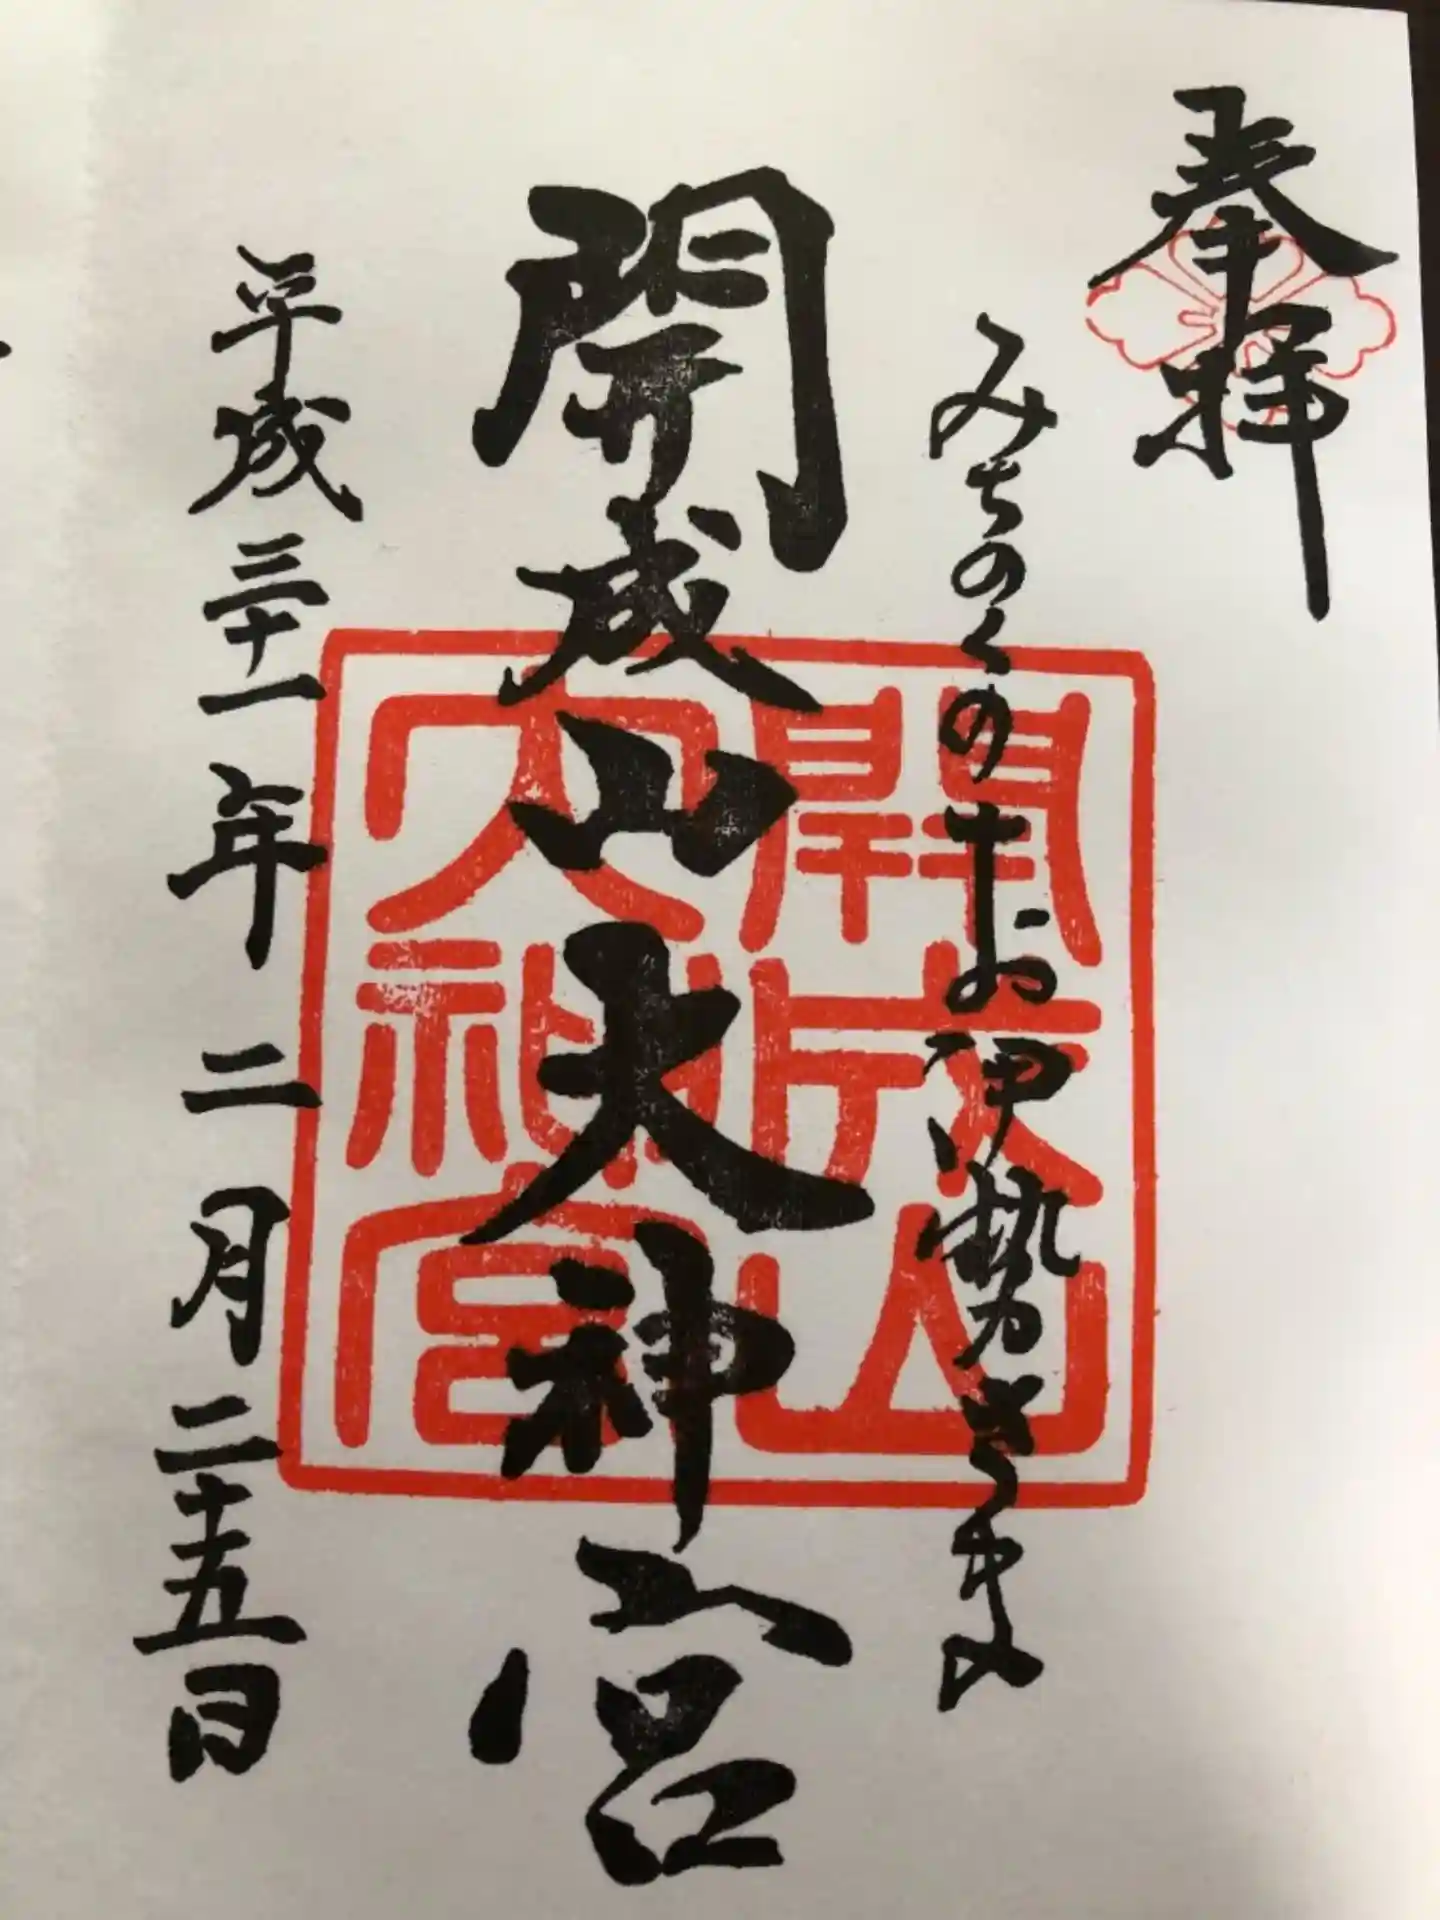 奉拝
みちのくのお伊勢さま
開成山大神宮
開成山
大神宮
平成三十一年二月二十五日